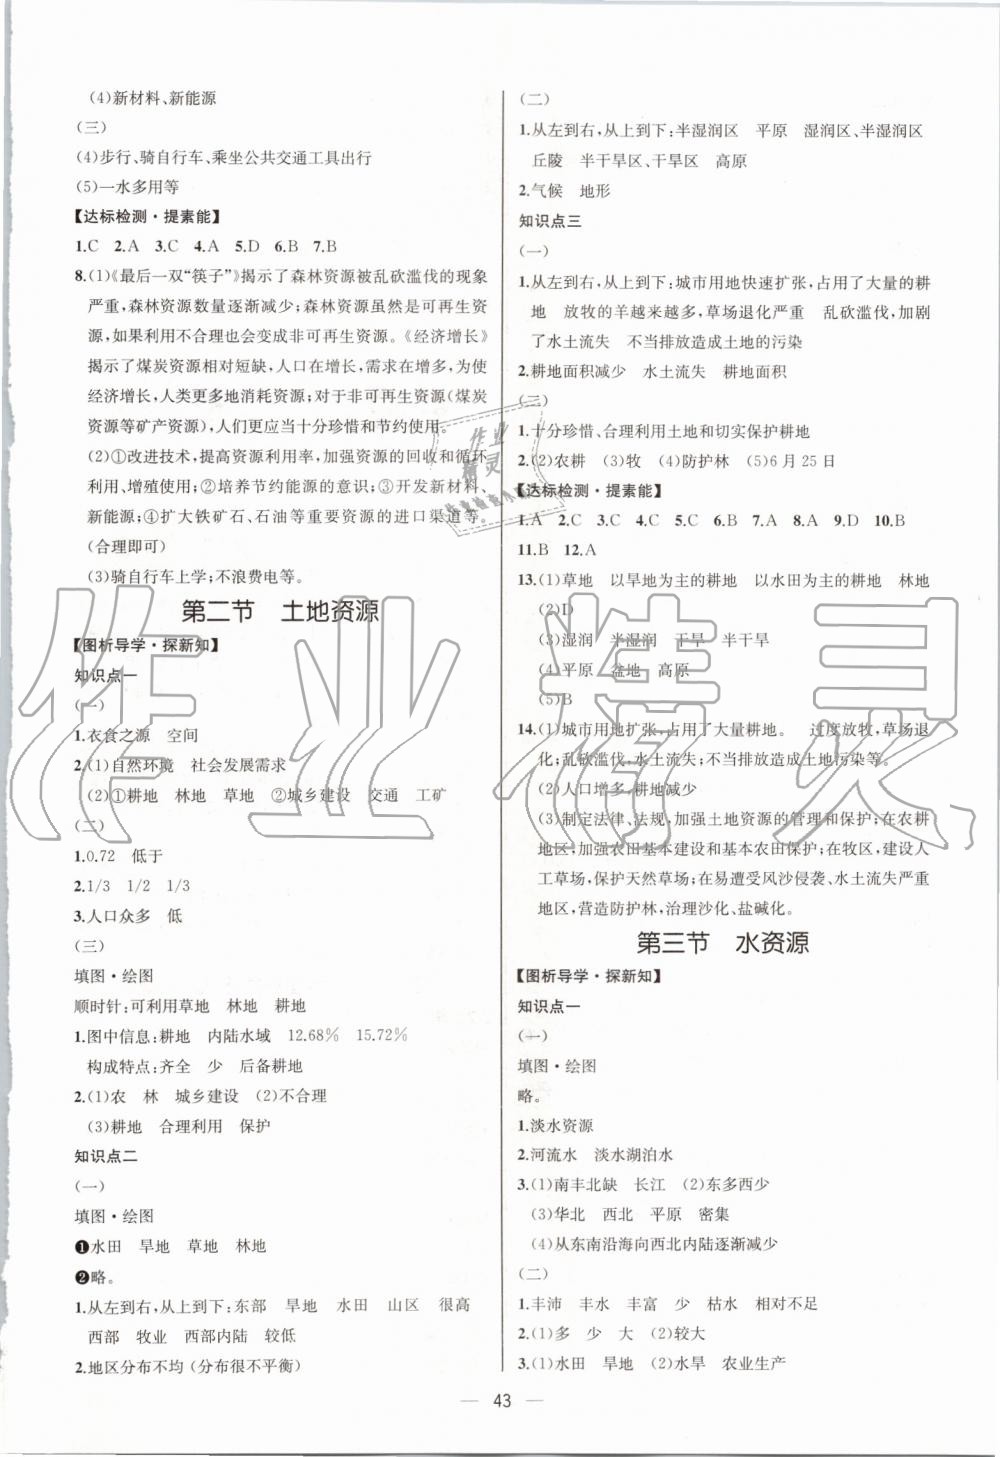 (4)新材料、新能源
(三)
(4)步行、骑自行车、乘坐公共交通工具出行
(5)一水多用等
【达标检测·提素能】
1.C 2.A 3.C 4.A 5.D 6.B 7.B
8.(1)《最后一双“筷子”》揭示了森林资源被乱砍滥伐的现象
严重,森林资源数量逐渐减少;森林资源虽然是可再生资
源,如果利用不合理也会变成非可再生资源。《经济增长》
揭示了煤炭资源相对短缺,人口在增长,需求在增多,为使
经济增长,人类更多地消耗资源;对于非可再生资源(煤炭
资源等矿产资源),人们更应当十分珍惜和节约使用。
(2)①改进技术,提高资源利用率,加强资源的回收和循环
利用、增殖使用;②培养节约能源的意识;③开发新材料、
新能源;④扩大铁矿石、石油等重要资源的进口渠道等。
(合理即可)
(3)骑自行车上学;不浪费电等。
第二节 土地资源
【图析导学·探新知】
知识点一
(一)
1.衣食之源 空间
2.(1)自然环境 社会发展需求
(2)①耕地 林地 草地 ②城乡建设 交通 工矿
(二)
1.0.72 低于
2.1/3 1/2 1/3
3.人口众多 低
(三)
填图·绘图
顺时针:可利用草地 林地 耕地
1.图中信息:耕地 内陆水域 12.68% 15.72%
构成特点:齐全 少 后备耕地
2.(1)农 林 城乡建设 (2)不合理
(3)耕地 合理利用 保护
知识点二
(一)
填图·绘图
❶水田 旱地 草地 林地
❷略。
1.从左到右,从上到下:东部 旱地 水田 山区 很高
西部 牧业 西部内陆 较低
2.地区分布不均(分布很不平衡)
(二)
1.从左到右,从上到下:半湿润区 平原 湿润区、半湿润区
丘陵 半干旱区、干旱区 高原
2.气候 地形
知识点三
(一)
1.从左到右,从上到下:城市用地快速扩张,占用了大量的耕
地 放牧的羊越来越多,草场退化严重 乱砍滥伐,加剧
了水土流失 不当排放造成土地的污染
2.耕地面积减少 水土流失 耕地面积
(二)
1.十分珍惜、合理利用土地和切实保护耕地
2.(2)农耕 (3)牧 (4)防护林 (5)6月25日
【达标检测·提素能】
1.A 2.C 3.C 4.C 5.C 6.B 7.A 8.A 9.D 10.B
11.B 12.A
13.(1)草地 以旱地为主的耕地 以水田为主的耕地 林地
(2)D
(3)湿润 半湿润 干旱 半干旱
(4)平原 盆地 高原
(5)B
14.(1)城市用地扩张,占用了大量耕地。 过度放牧,草场退
化;乱砍滥伐,水土流失;不当排放造成土地污染等。
(2)人口增多,耕地减少
(3)制定法律、法规,加强土地资源的管理和保护;在农耕
地区,加强农田基本建设和基本农田保护;在牧区,建设人
工草场,保护天然草场;在易遭受风沙侵袭、水土流失严重
地区,营造防护林,治理沙化、盐碱化。
第三节 水资源
【图析导学·探新知】
知识点一
(一)
填图·绘图
略。
1.淡水资源
2.河流水 淡水湖泊水
3.(1)南丰北缺 长江 (2)东多西少
(3)华北 西北 平原 密集
(4)从东南沿海向西北内陆逐渐减少
(二)
1.丰沛 丰水 丰富 少 枯水 相对不足
2.(1)多 少 大 (2)较大
3.(1)水田 旱地 (2)水旱 农业生产
43
作业精灵
作业精灵